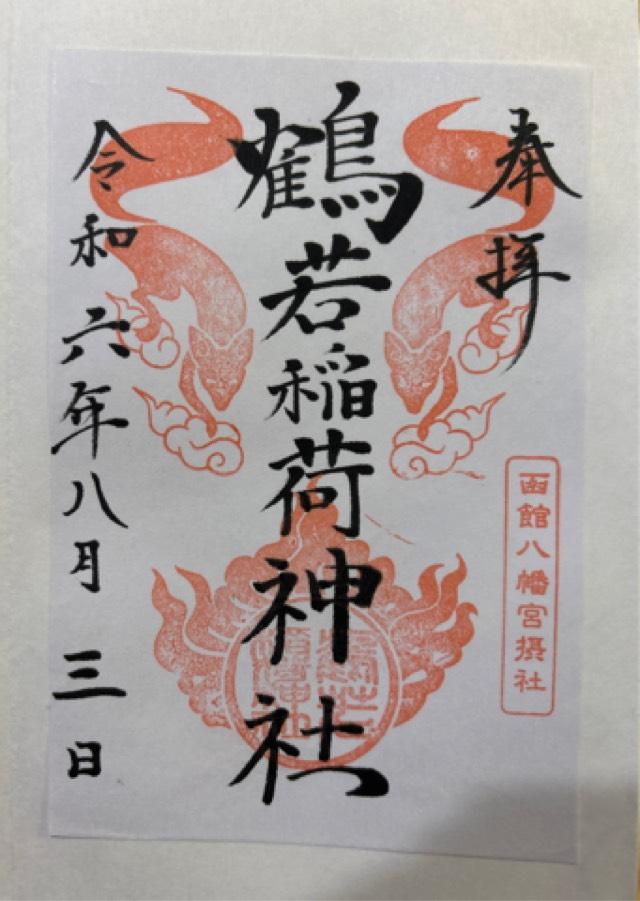 奉拝
函館八幡宮摂社
鶴若稲荷神社
令和六年八月三日